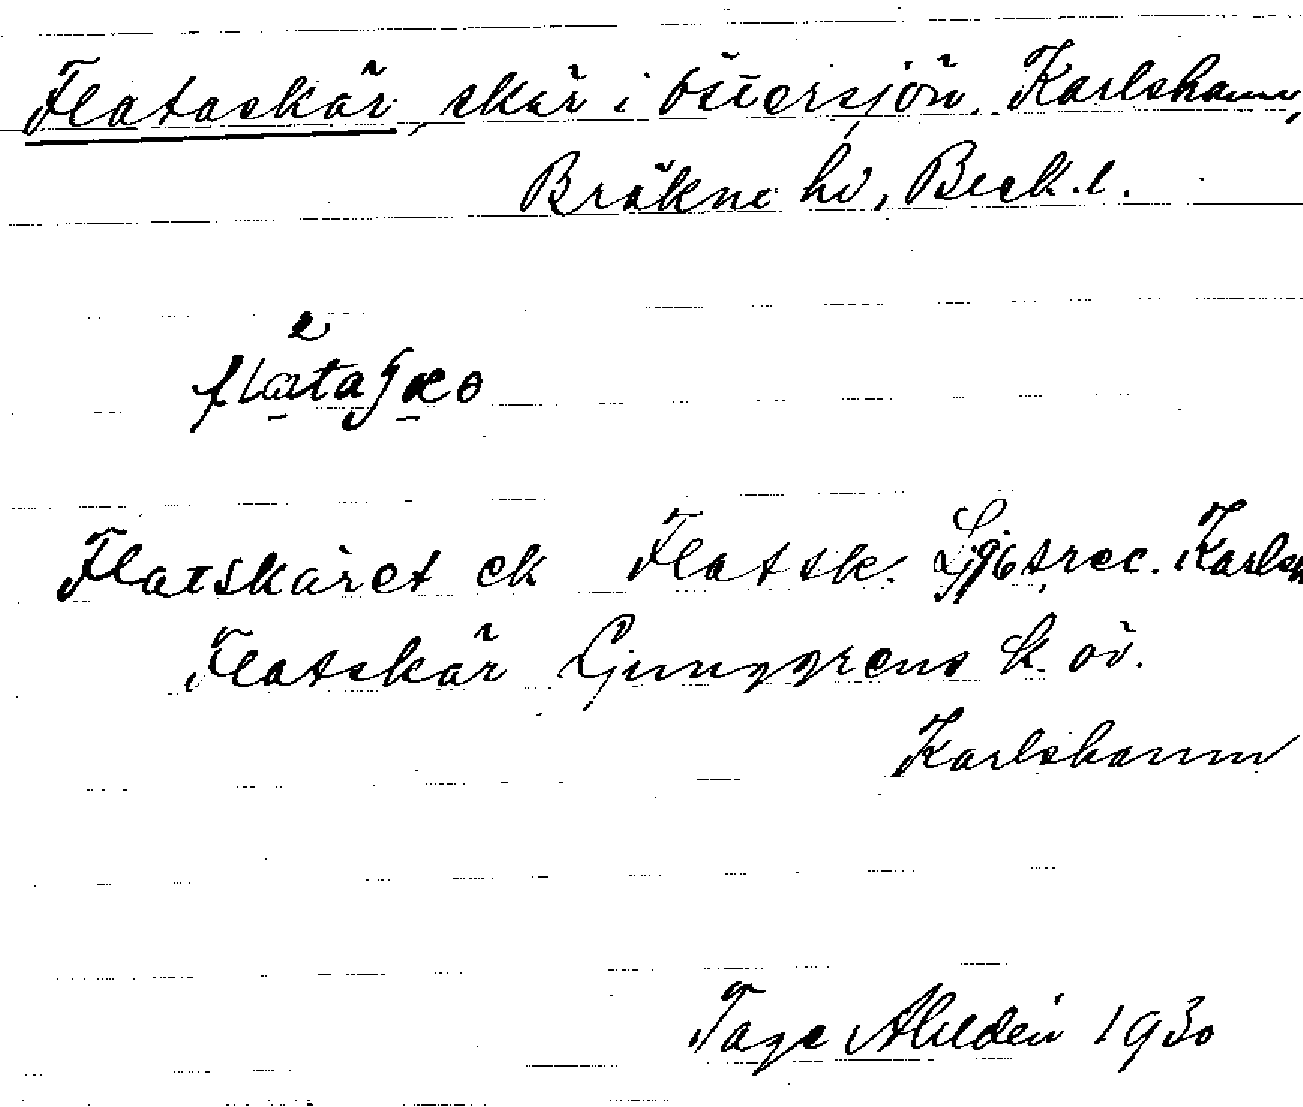 Flataskär, skär i Östersjön. Karlshamn,
Bräkne hd, Blek. l.
Flatskäret ek Flatsk. Karlsh
Flatskär Ljunggrens k. öv.
Karlshamn
Tage Ahldén 1930